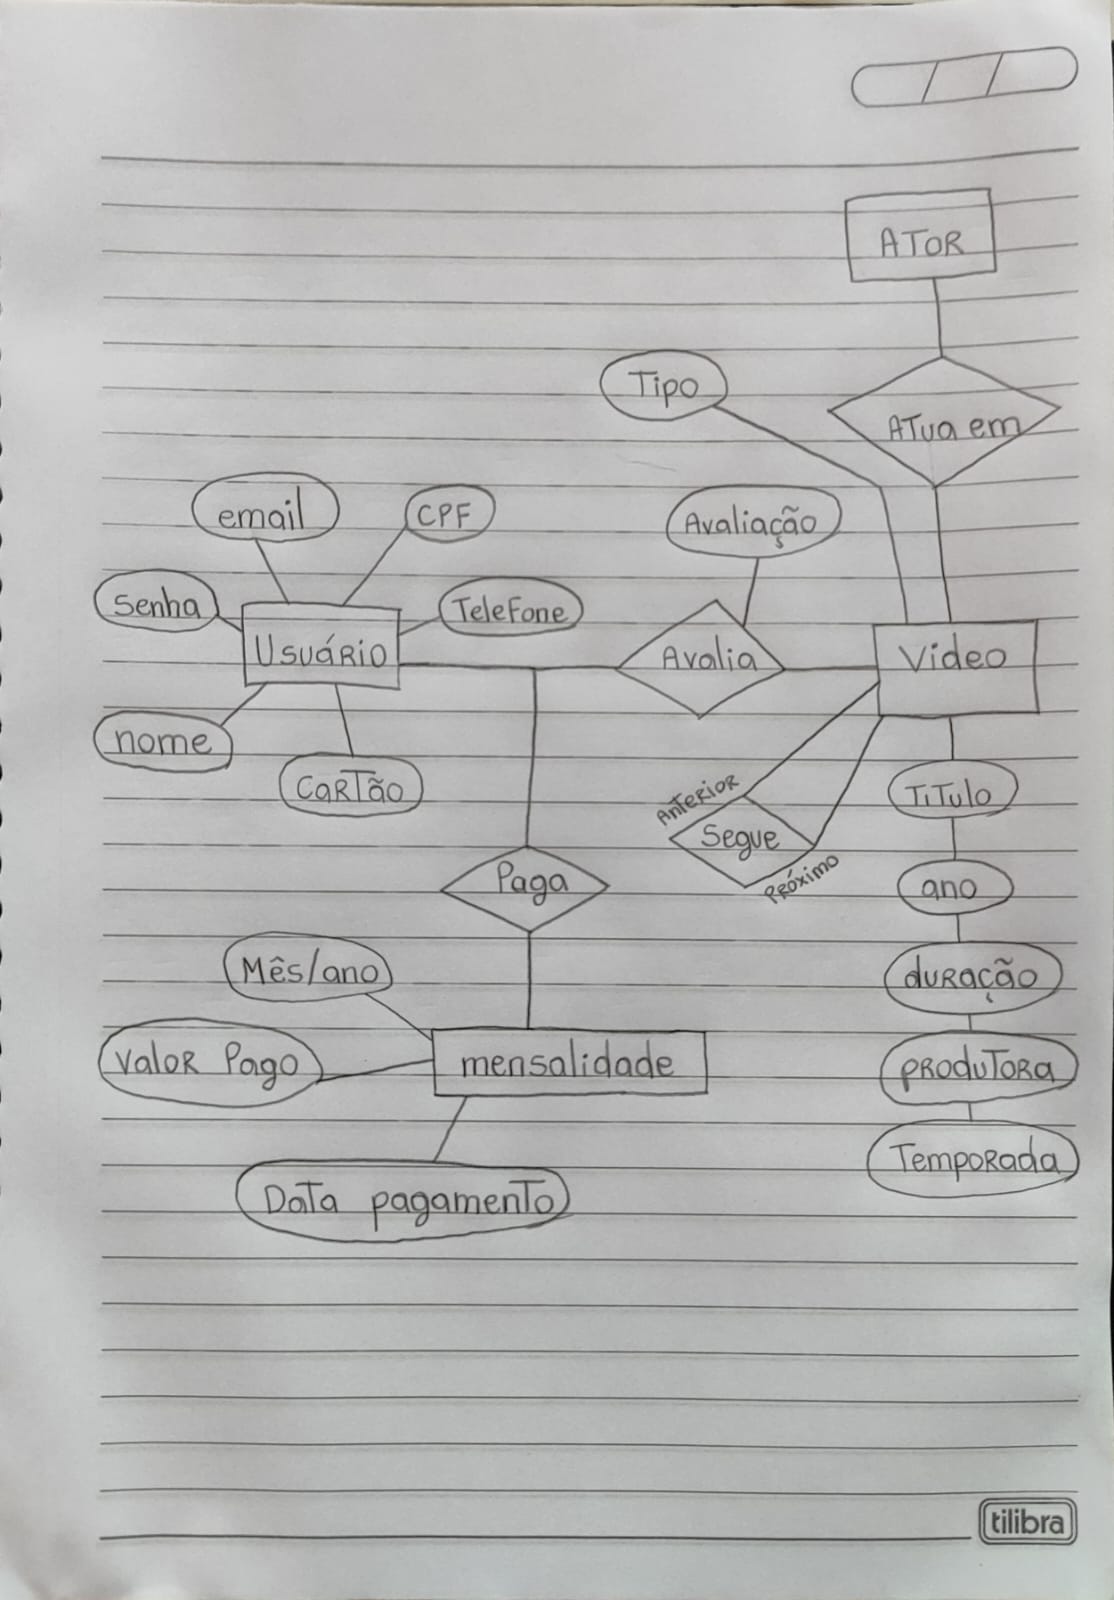 ATOR
Tipo
ATua em
email
CPF
Avaliação
Senha
TeleFone
Usuário
Avalia
Video
nome
CarTão
Anterior
Segue
Próximo
TiTulo
Paga
ano
Mês/ano
duração
Valor Pago
mensalidade
produTora
Temporada
DaTa pagamenTo
tilibra